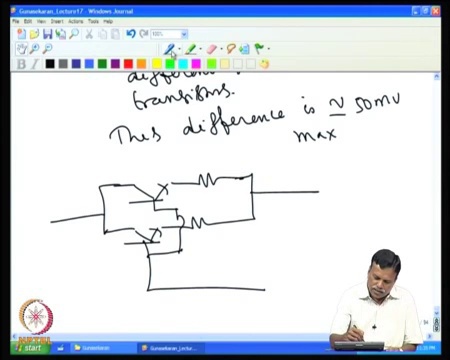 Gunasekaran_Lecture17 - Windows Journal
File Edit View Insert Actions Tools Help
100%
B I
difference
transistors.
This difference is ≃ 50mv
max
NPTEL
start
Gunasekaran
Gunasekaran_Lectu...